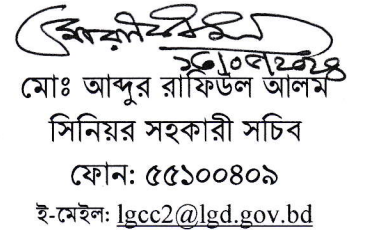 মোঃ আব্দুর রাফিউল আলম
সিনিয়র সহকারী সচিব
ফোন: ৫৫১০০৪০৯
ই-মেইল: lgcc2@lgd.gov.bd